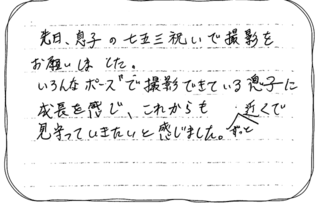 先日、息子の七五三祝いで撮影を
お願いしました。
いろんなポーズで撮影できている息子に
成長を感じ、これからもずっと近くで
見守っていきたいと感じました。